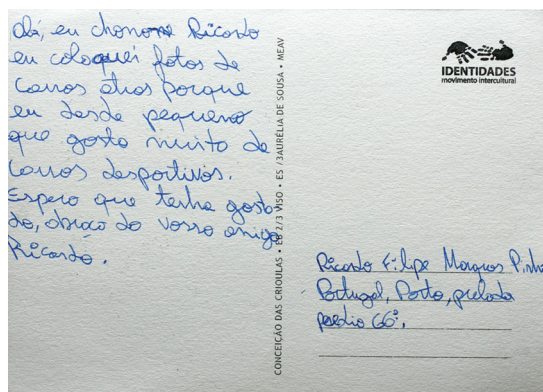 olá, eu chamo-me Ricardo
eu coloquei fotos de
carros atras porque
eu desde pequeno
que gosto muito de
carros desportivos.
Espero que tenha gosta-
do, abraço do vosso amigo
Ricardo.
CONCEIÇÃO DAS CRIOULAS • EB 2/3 VISO • ES /3AURÉLIA DE SOUSA • MEAV
IDENTIDADES
movimento intercultural
Ricardo Filipe Marques
Portugal, Porto,
predio 66º.